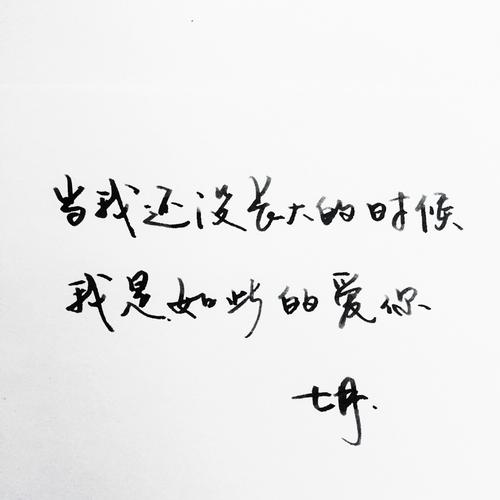 当我还没长大的时候
我是如此的爱你
七月.